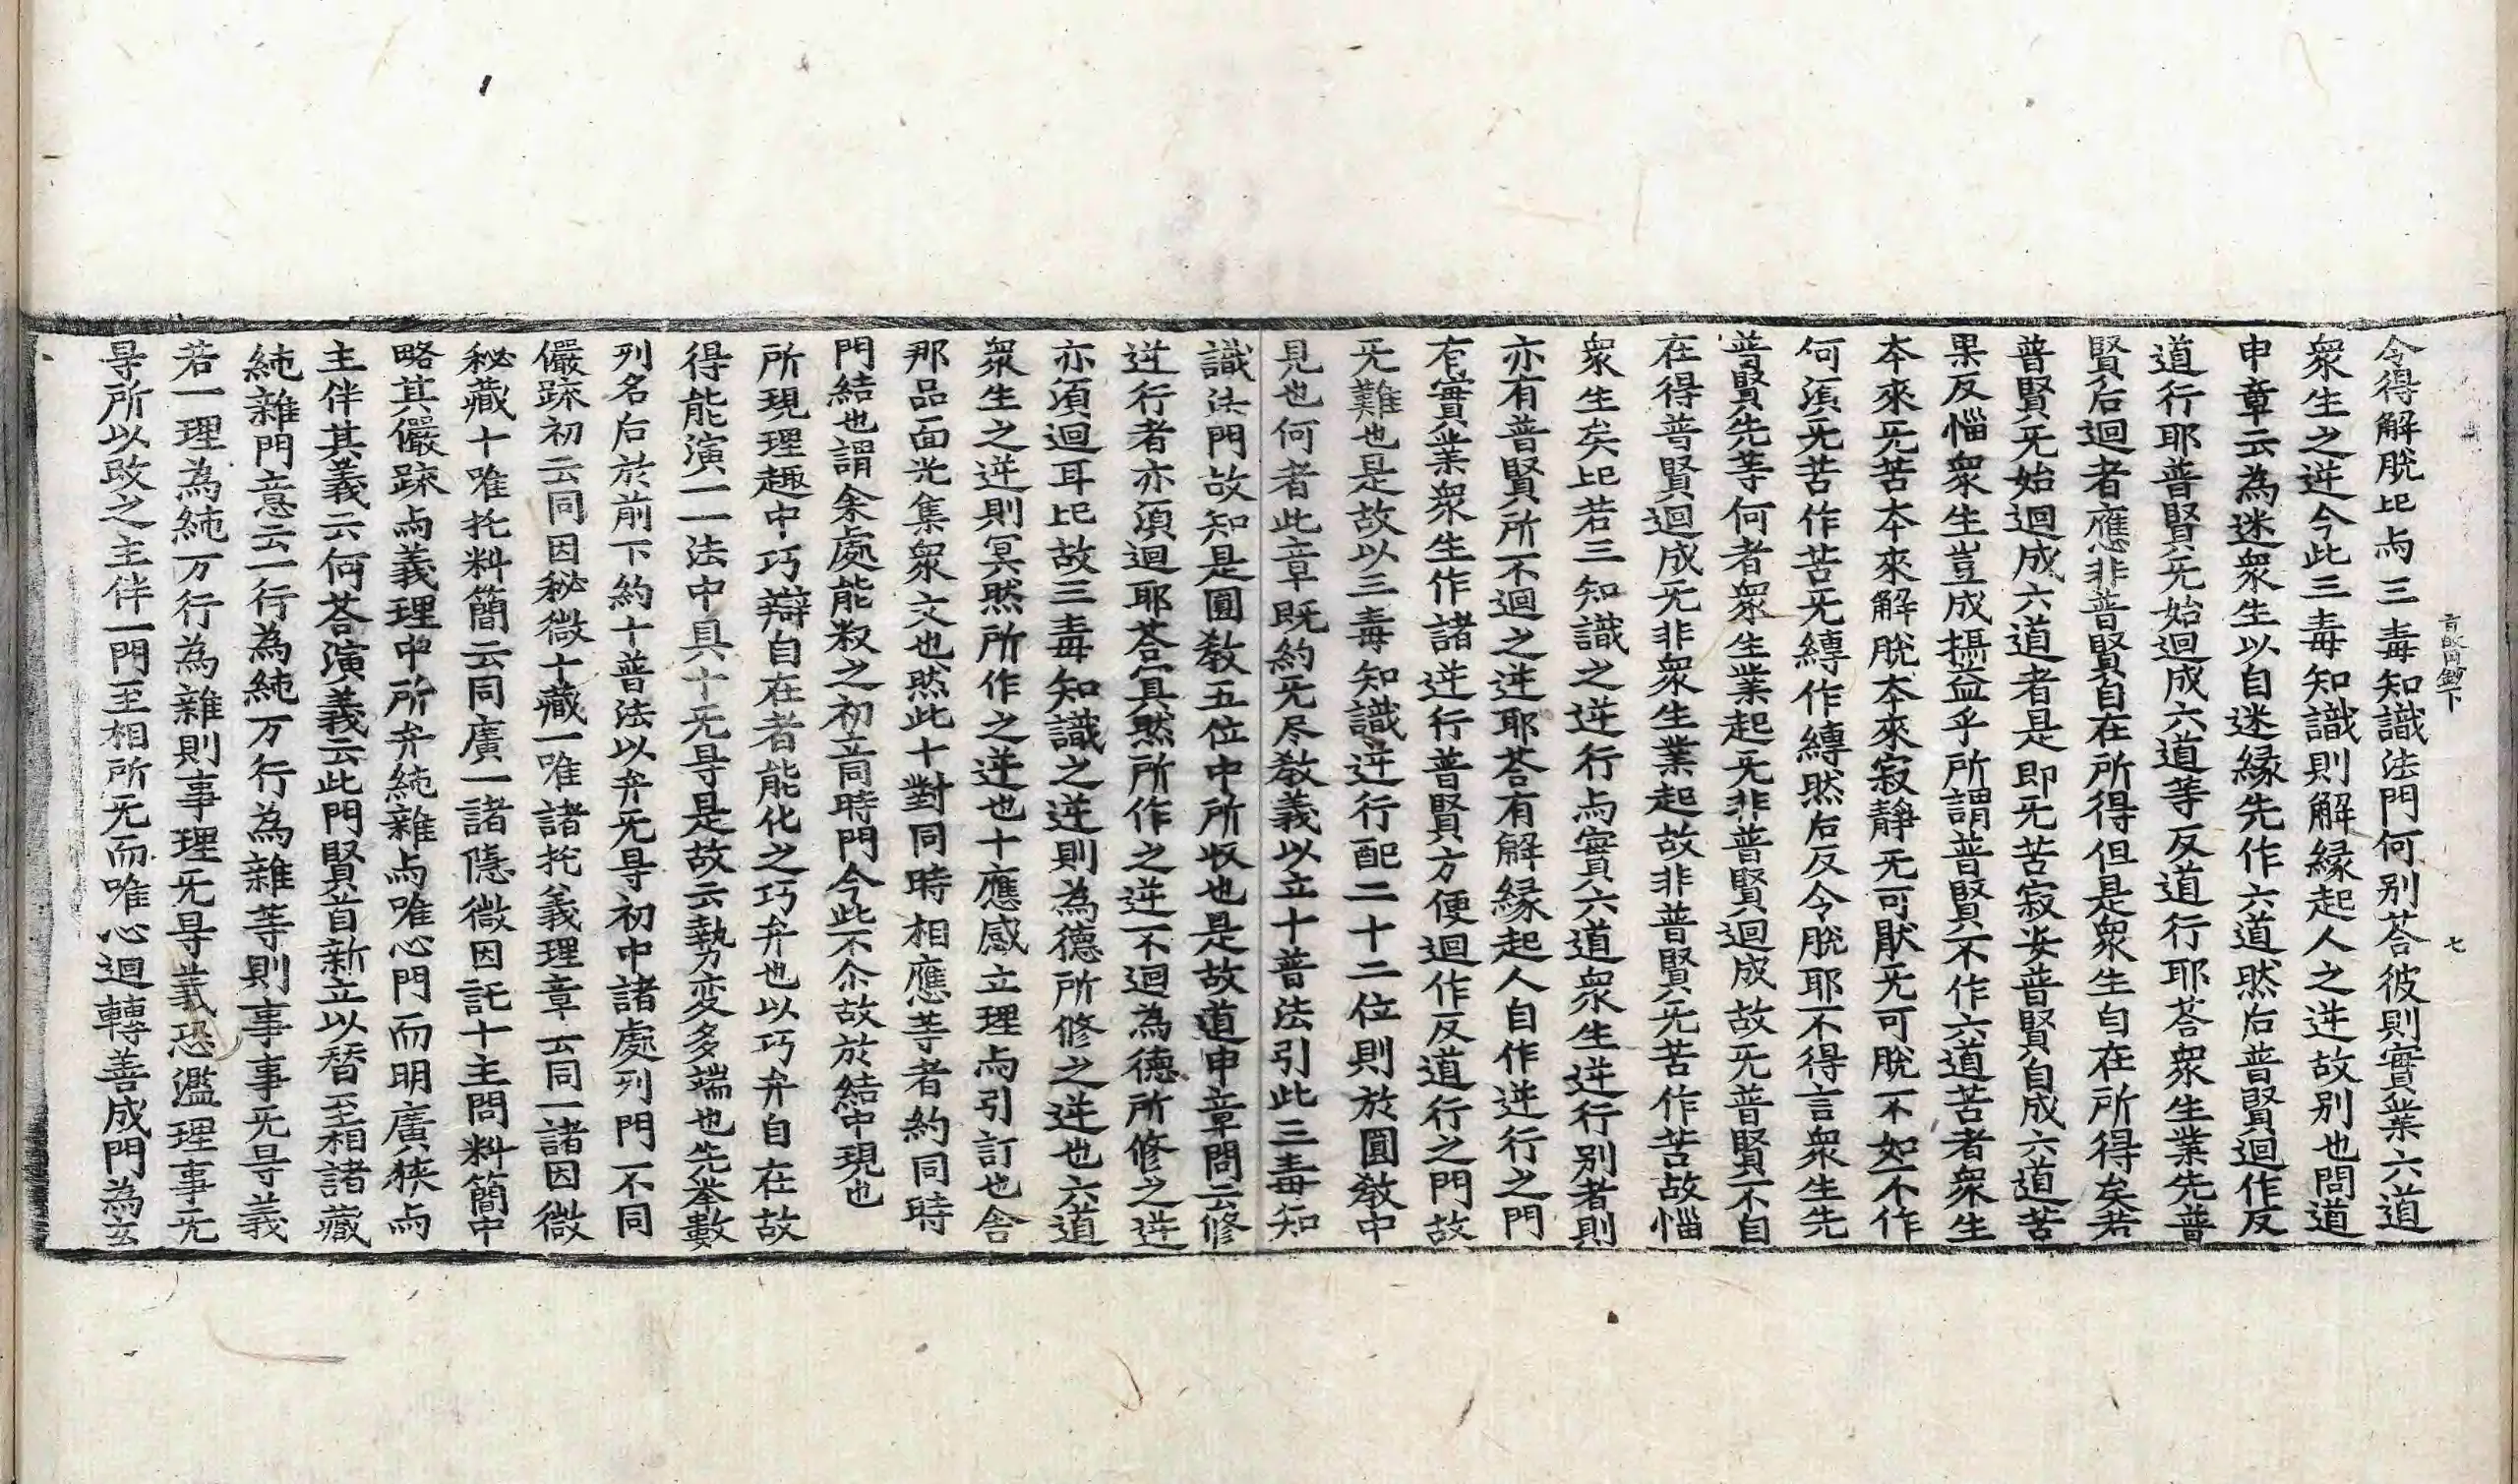 令得解脫比与三毒知識法門何別荅彼則實業六道
衆生之逆今此三毒知識則解緣起人之逆故別也問道
申章云為迷衆生以自迷緣先作六道然后普賢迴作反
道行耶普賢旡始迴成六道等反道行耶荅衆生業先普
賢后迴者應非普賢自在所得但是衆生自在所得矣若
普賢旡始迴成六道者是即旡苦寂安普賢自成六道苦
果反惱衆生豈成攝益乎所謂普賢不作六道苦者衆生
本來旡苦本來解脫本來寂靜旡可猒旡可脫不如不作
何湏旡苦作苦旡縛作縛然后反令脫耶不得言衆生先
普賢先等何者衆生業起旡非普賢迴成故旡普賢不自
在得普賢迴成旡非衆生業起故非普賢旡苦作苦故惱
衆生矣比若三知識之逆行与實六道衆生逆行別者則
亦有普賢所不迴之逆耶荅有解緣起人自作逆行之門
有實業衆生作諸逆行普賢方便迴作反道行之門故
旡難也是故以三毒知識逆行配二十二位則於圓敎中
見也何者此章既約旡尽敎義以立十普法引此三毒知
識法門故知是圓敎五位中所収也是故道申章問云修
逆行者亦湏迴耶荅冥然所作之逆不迴為德所修之逆
亦湏迴耳比故三毒知識之逆則為德所修之逆也六道
衆生之逆則冥然所作之逆也十應感立理与引訂也舎
那品面光集衆文也然此十對同時相應等者約同時
門結也謂余處能敍之初言同時門今此不尒故於結中現也
所現理趣中巧辯自在者能化之巧弁也以巧弁自在故
得能演一一法中具十旡㝵是故云勢変多端也先举數
列名后於前下約十普法以弁旡㝵初中諸處列門不同
儼䟽初云同因秘微十藏一唯諸托義理章云同一諸因微
秘藏十唯托料簡云同廣一諸隱微因託十主問料簡中
略其儼䟽与義理中所弁純雜与唯心門而明廣狹与
主伴其義云何荅演義云此門賢首新立以替至相諸藏
純雜門意云一行為純万行為雜等則事事旡㝵義
若一理為純万行為雜則事理旡㝵義恐濫理事旡
㝵所以改之主伴一門至相所旡而唯心迴轉善成門為玄
七